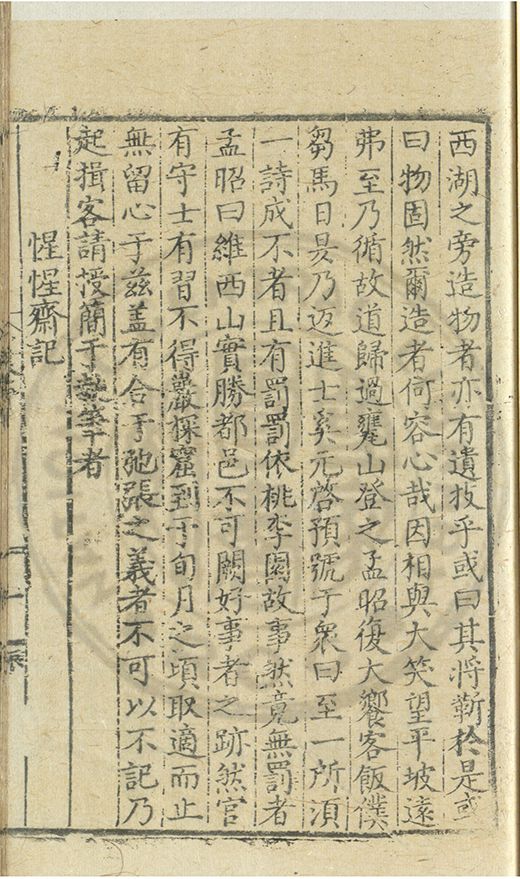 西湖之旁造物者亦有遺技乎或曰其將蘄於是或
曰物固然爾造者何容心哉因相與大笑望平坡遠
弗至乃循故道歸過甕山登之孟昭復大饗客飯僕
芻馬日昃乃返進士奚元啓預號于衆曰至一所須
一詩成不者且有罰罰依桃李園故事然竟無罰者
孟昭曰維西山實勝都邑不可闕好事者之跡然官
有守士有習不得巖探窟到于旬月之頃取適而止
無留心于茲盖有合于弛張之義者不可以不記乃
起揖客請授簡于執筆者
惺惺齋記